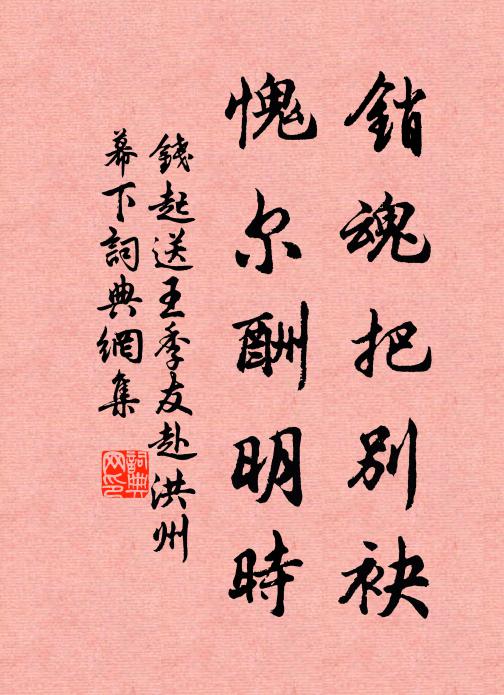 銷魂把別袂
愧尔酬明時
錢起送王季友赴洪州
幕下詞典網集
詞典網印